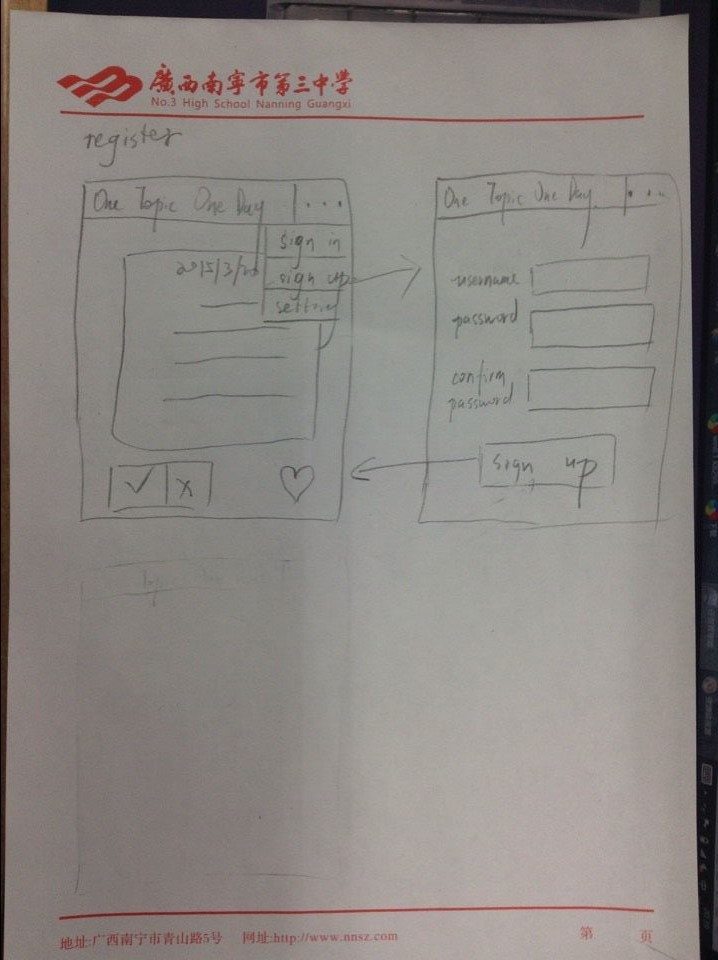 廣西南寧市第三中學
No.3 High School Nanning Guangxi
register
One Topic One Day ...
sign in
2015/3/
sign up
setting
One Topic One Day ...
username
password
confirm
password
sign up
地址:广西南宁市青山路5号 网址:http://www.nnsz.com
第 页